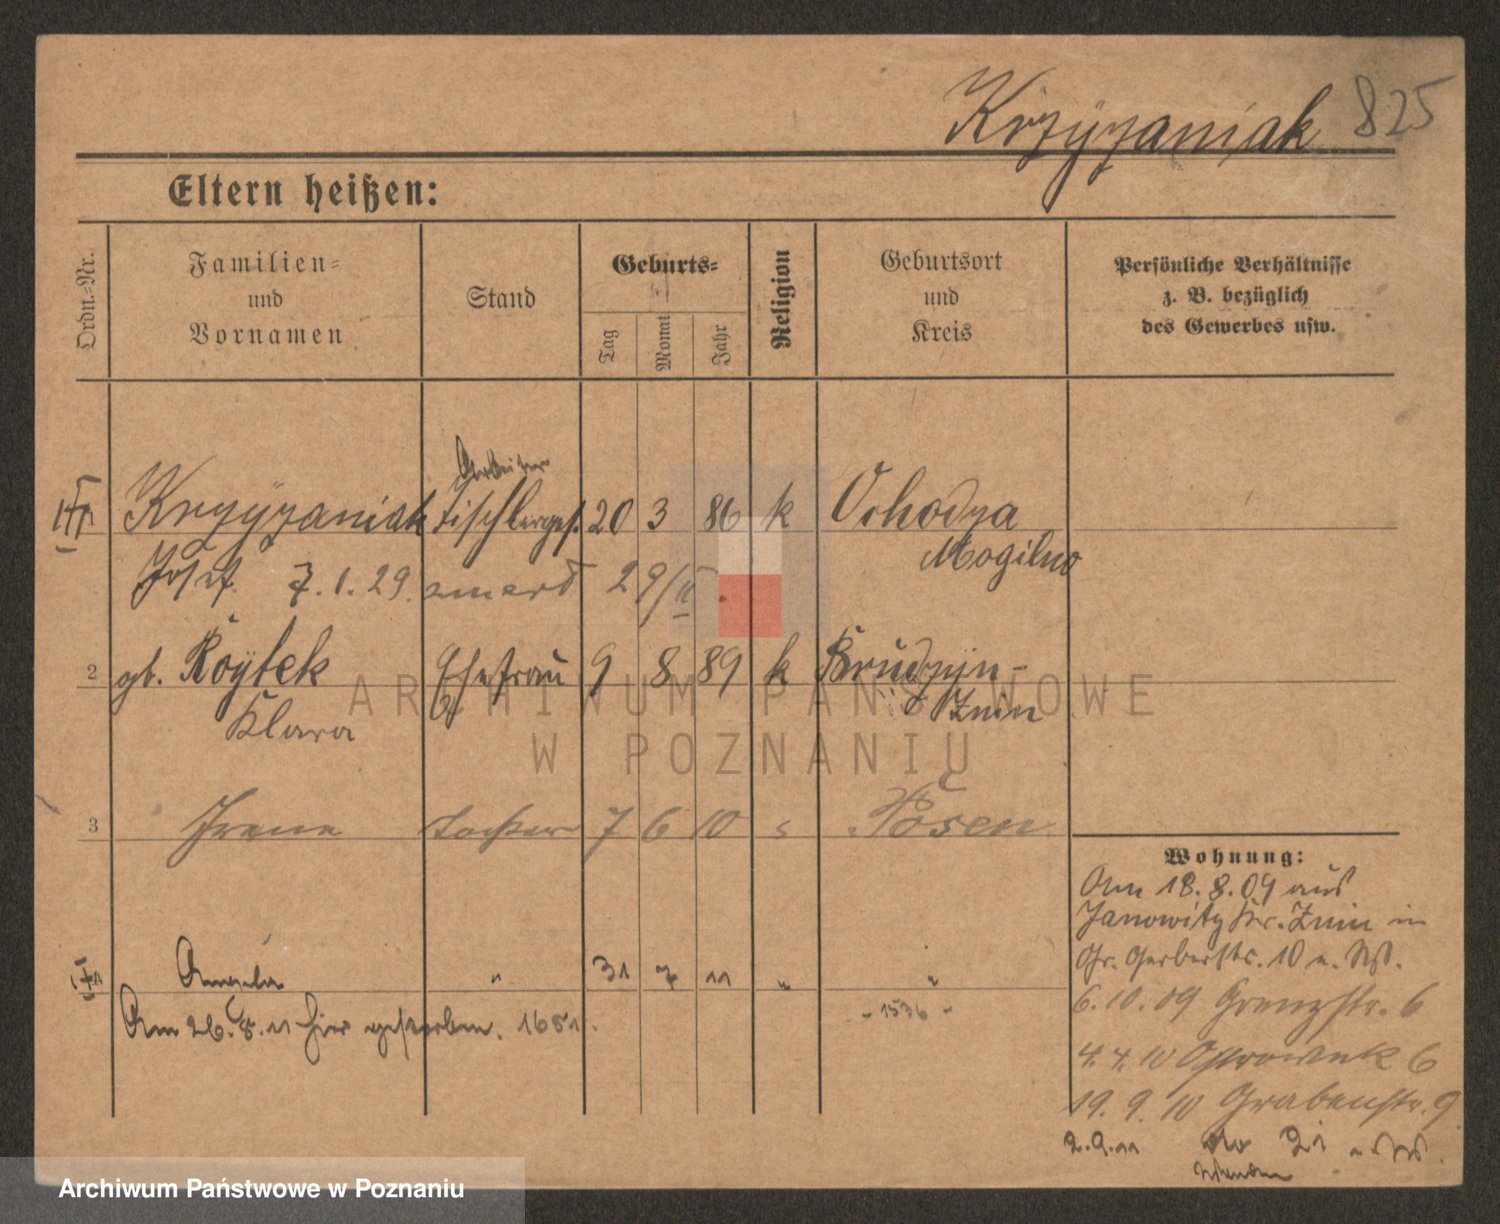 Krzÿzaniak 825
Eltern heißen:
Ordn.-Nr.
Familien-
und
Vornamen
Stand
Geburts-
Tag
Monat
Jahr
Religion
Geburtsort
und
Kreis
Persönliche Verhältnisse
z. B. bezüglich
des Gewerbes usw.
Arbeiter
Krzÿzaniak Tischlerges. 20 3 86 k Ochodza
Mogilno
Josef. 7.1.29. zmarł 29/II.
2 gb. Roÿtek Ehefrau 9 8 89 k Brudzyn-
Klara Znin
3 Irene Tochter 7 6 10 Posen
Angela " 31 7 11 " "
Am 26.8.11 hier gestorben. 1651. - 1536 -
Wohnung:
Am 18.8.09 aus
Janowitz Kr. Znin in
Gr. Gerberstr. 10
6.10.09 Grenzstr. 6
4.4.10 Ostrowek 6
19.9.10 Grabenstr. 9
2.9.11 do 21
ARCHIWUM PAŃSTWOWE
W POZNANIU
Archiwum Państwowe w Poznaniu